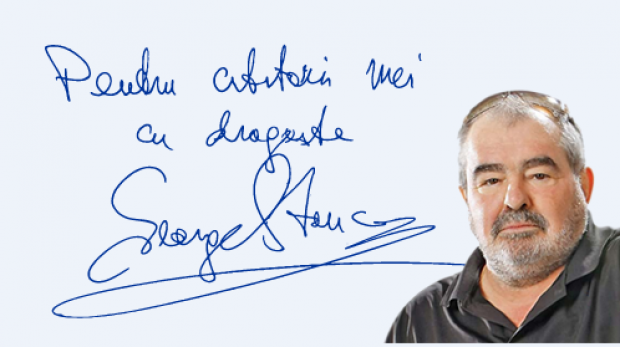 Pentru cititorii mei
cu dragoste
George Stanca